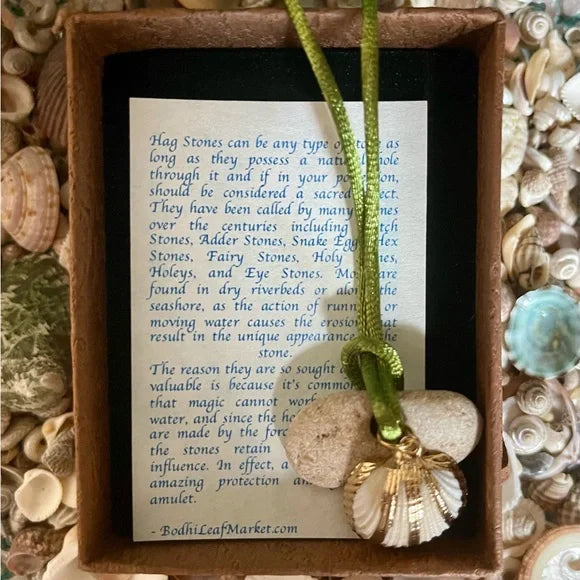 Hag Stones can be any type of as
long as they possess a natural hole
through it and if in your
should be considered a sacred
They have been called by many
over the centuries including
Stones, Adder Stones, Snake Hex
Stones, Fairy Stones, Holy
Holeys, and Eye Stones. are
found in dry riverbeds or the
seashore, as the action of or
moving water causes the that
result in the unique appearance the
stone.
The reason they are so sought
valuable is because it's
that magic cannot
water, and since the
are made by the
the stones retain
influence. In effect, a
amazing protection
amulet.
- BodhiLeafMarket.com